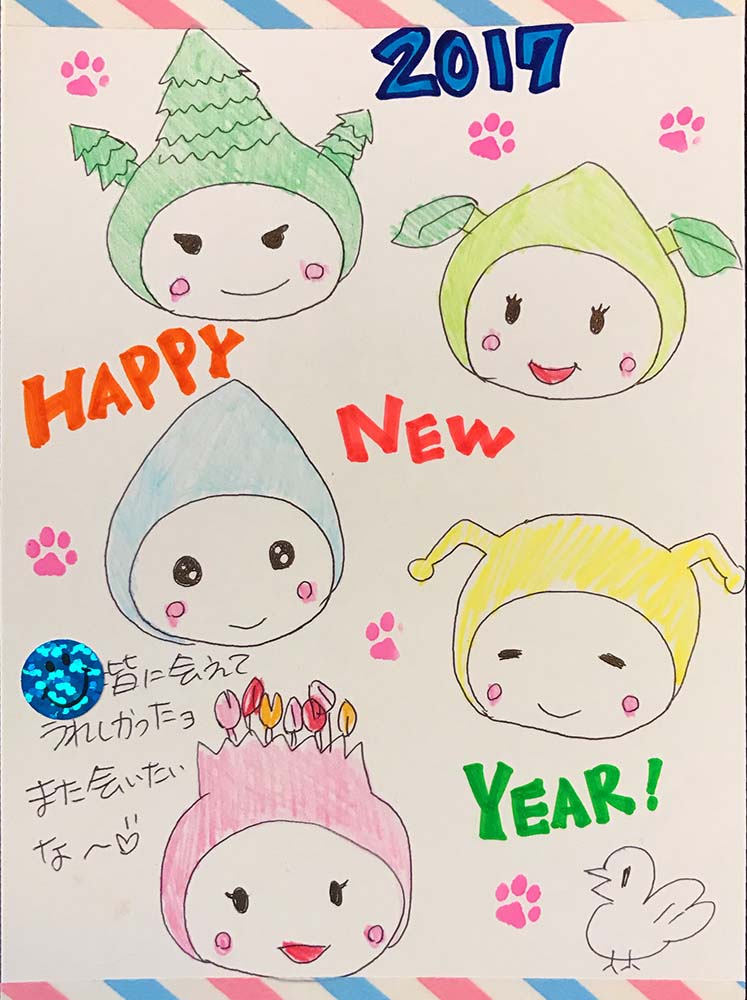 2017
HAPPY
NEW
皆に会えて
うれしかったョ
また会いたい
な〜♡
YEAR!